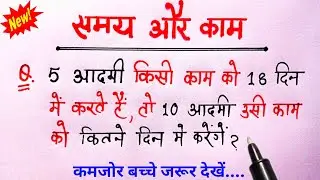 New!
समय और काम
Q. 5 आदमी किसी काम को 18 दिन
में करते हैं, तो 10 आदमी उसी काम
को कितने दिन में करेंगें?
कमजोर बच्चे जरूर देखें....